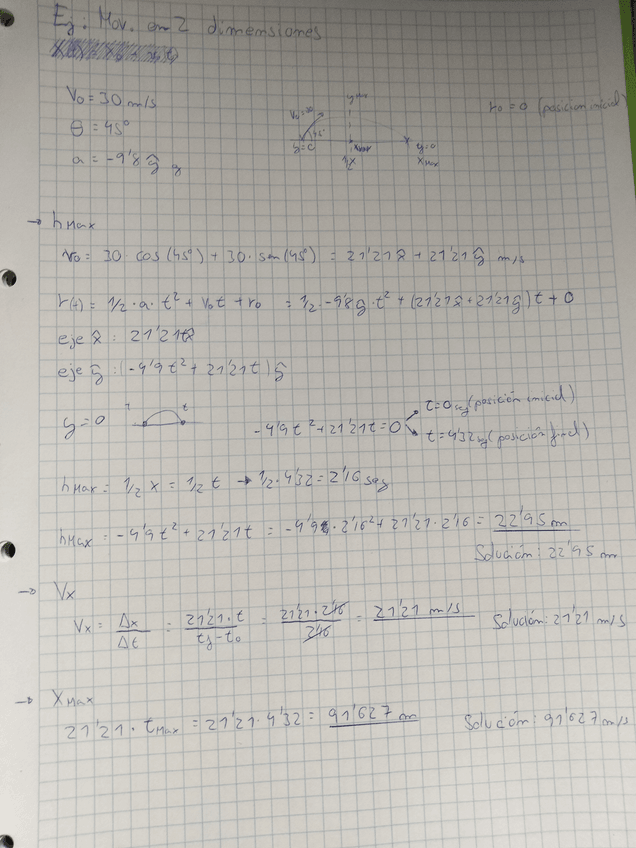 Ej: Mov. en 2 dimensiones
V₀ = 30 m/s
θ = 45°
a = -9'8 ŷ
r₀ = 0 (posicion inicial)
V₀=30
45°
y=0
y max
x max
y=0
X max
→ h Max
V₀ = 30 · cos(45°) + 30 · sen(45°) = 21'21 x̂ + 21'21 ŷ m/s
r(t) = 1/2 · a · t² + V₀ t + r₀ = 1/2 · -9'8 ŷ · t² + (21'21 x̂ + 21'21 ŷ) t + 0
eje x̂ : 21'21 t x̂
eje ŷ : (-4'9 t² + 21'21 t) ŷ
y = 0
-4'9 t² + 21'21 t = 0
t = 0 seg (posición inicial)
t = 4'32 seg (posición final)
h Max = 1/2 x = 1/2 t → 1/2 · 4'32 = 2'16 seg
h Max = -4'9 t² + 21'21 t = -4'9 · 2'16² + 21'21 · 2'16 = 22'95 m
Solución: 22'95 m
→ Vx
Vx = Δx / Δt = 21'21 · t / tf - t₀ = 21'21 · 2'16 / 2'16 = 21'21 m/s Solución: 21'21 m/s
→ X Max
21'21 · t Max = 21'21 · 4'32 = 91'627 m Solución: 91'627 m/s